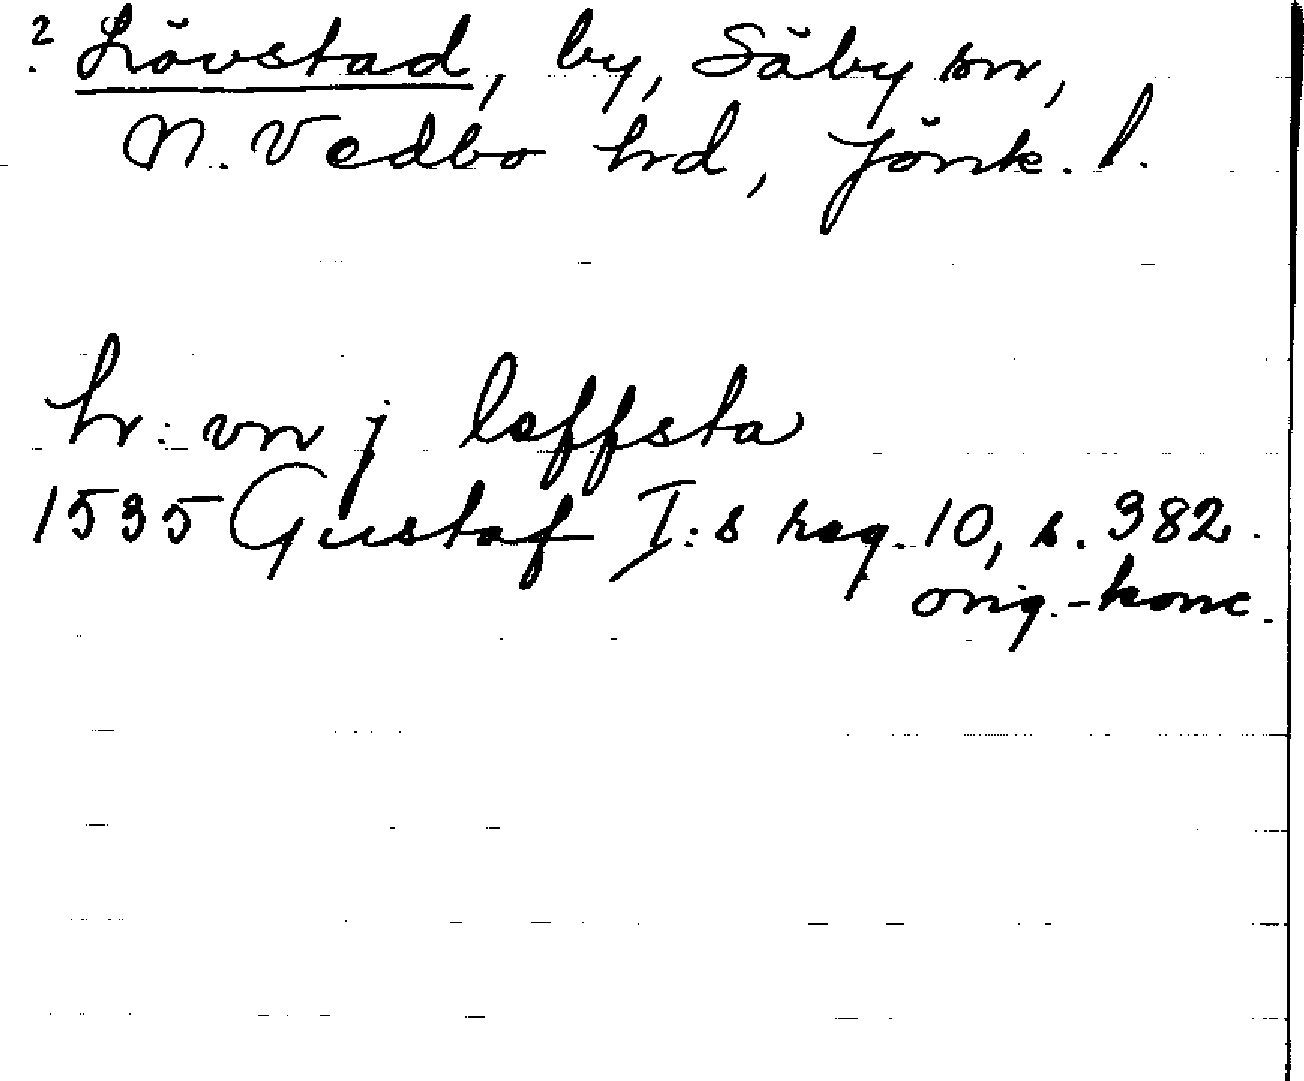 ? Lövstad, by, Säby sn,
N. Vedbo hrd, Jönk. l.
hr: vn j loffsta
1535 Gustaf I:s reg. 10, s. 382.
orig.-konc.